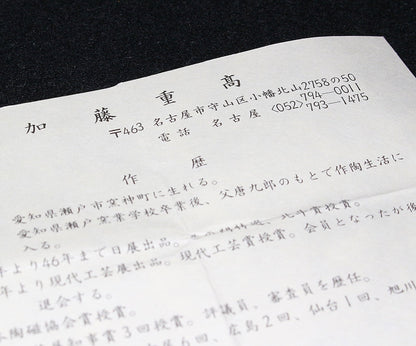 加藤重高
〒463 名古屋市守山区小幡北山2758の50
電話 名古屋〈052〉794―0011
793―1475
作歴
愛知県瀬戸市窯神町に生れる。
愛知県瀬戸窯業学校卒業後、父唐九郎のもとで作陶生活に
入る。
年より46年まで日展出品。 北斗賞授賞。
年より現代工芸展出品。現代工芸賞授賞。会員となったが後
退会する。
陶磁協会賞授賞。
知事賞3回授賞。評議員、審査員を歴任。
6回、広島2回、仙台1回、旭川